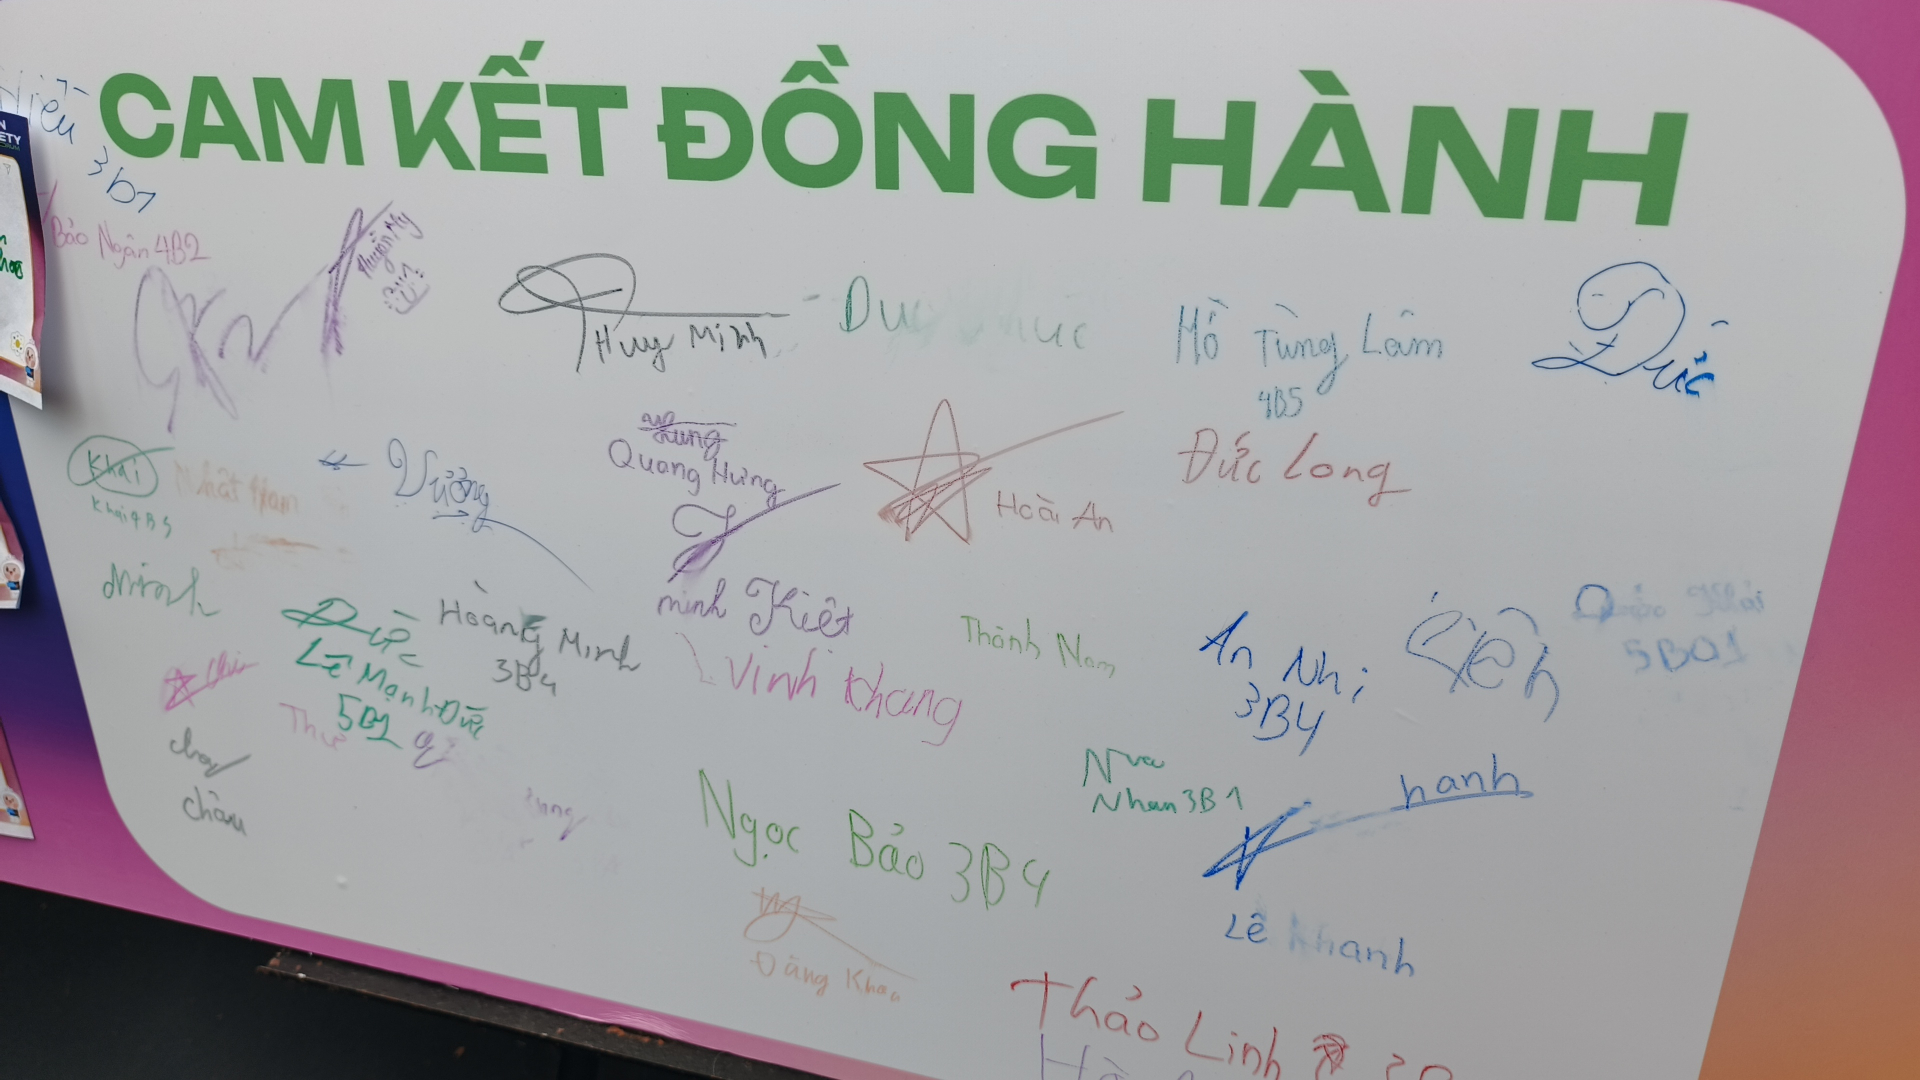 CAM KẾT ĐỒNG HÀNH
3b1
Bảo Ngân 4B2
Huy Minh
Hồ Tùng Lâm
4B5
Đức
Khải
Khải 4B5
Nhật Nam
Vương
Quang Hưng
Hoài An
Đức Long
Minh
Đức
Lê Mạnh Đức
5B1
Hoàng Minh
3B4
minh Kiệt
Vinh Khang
Thành Nam
An Nhi
3B4
5B01
Thư
châu
Nhan 3B1
hanh
Ngọc Bảo 3B4
Lê Khanh
Đăng Khoa
Thảo Linh